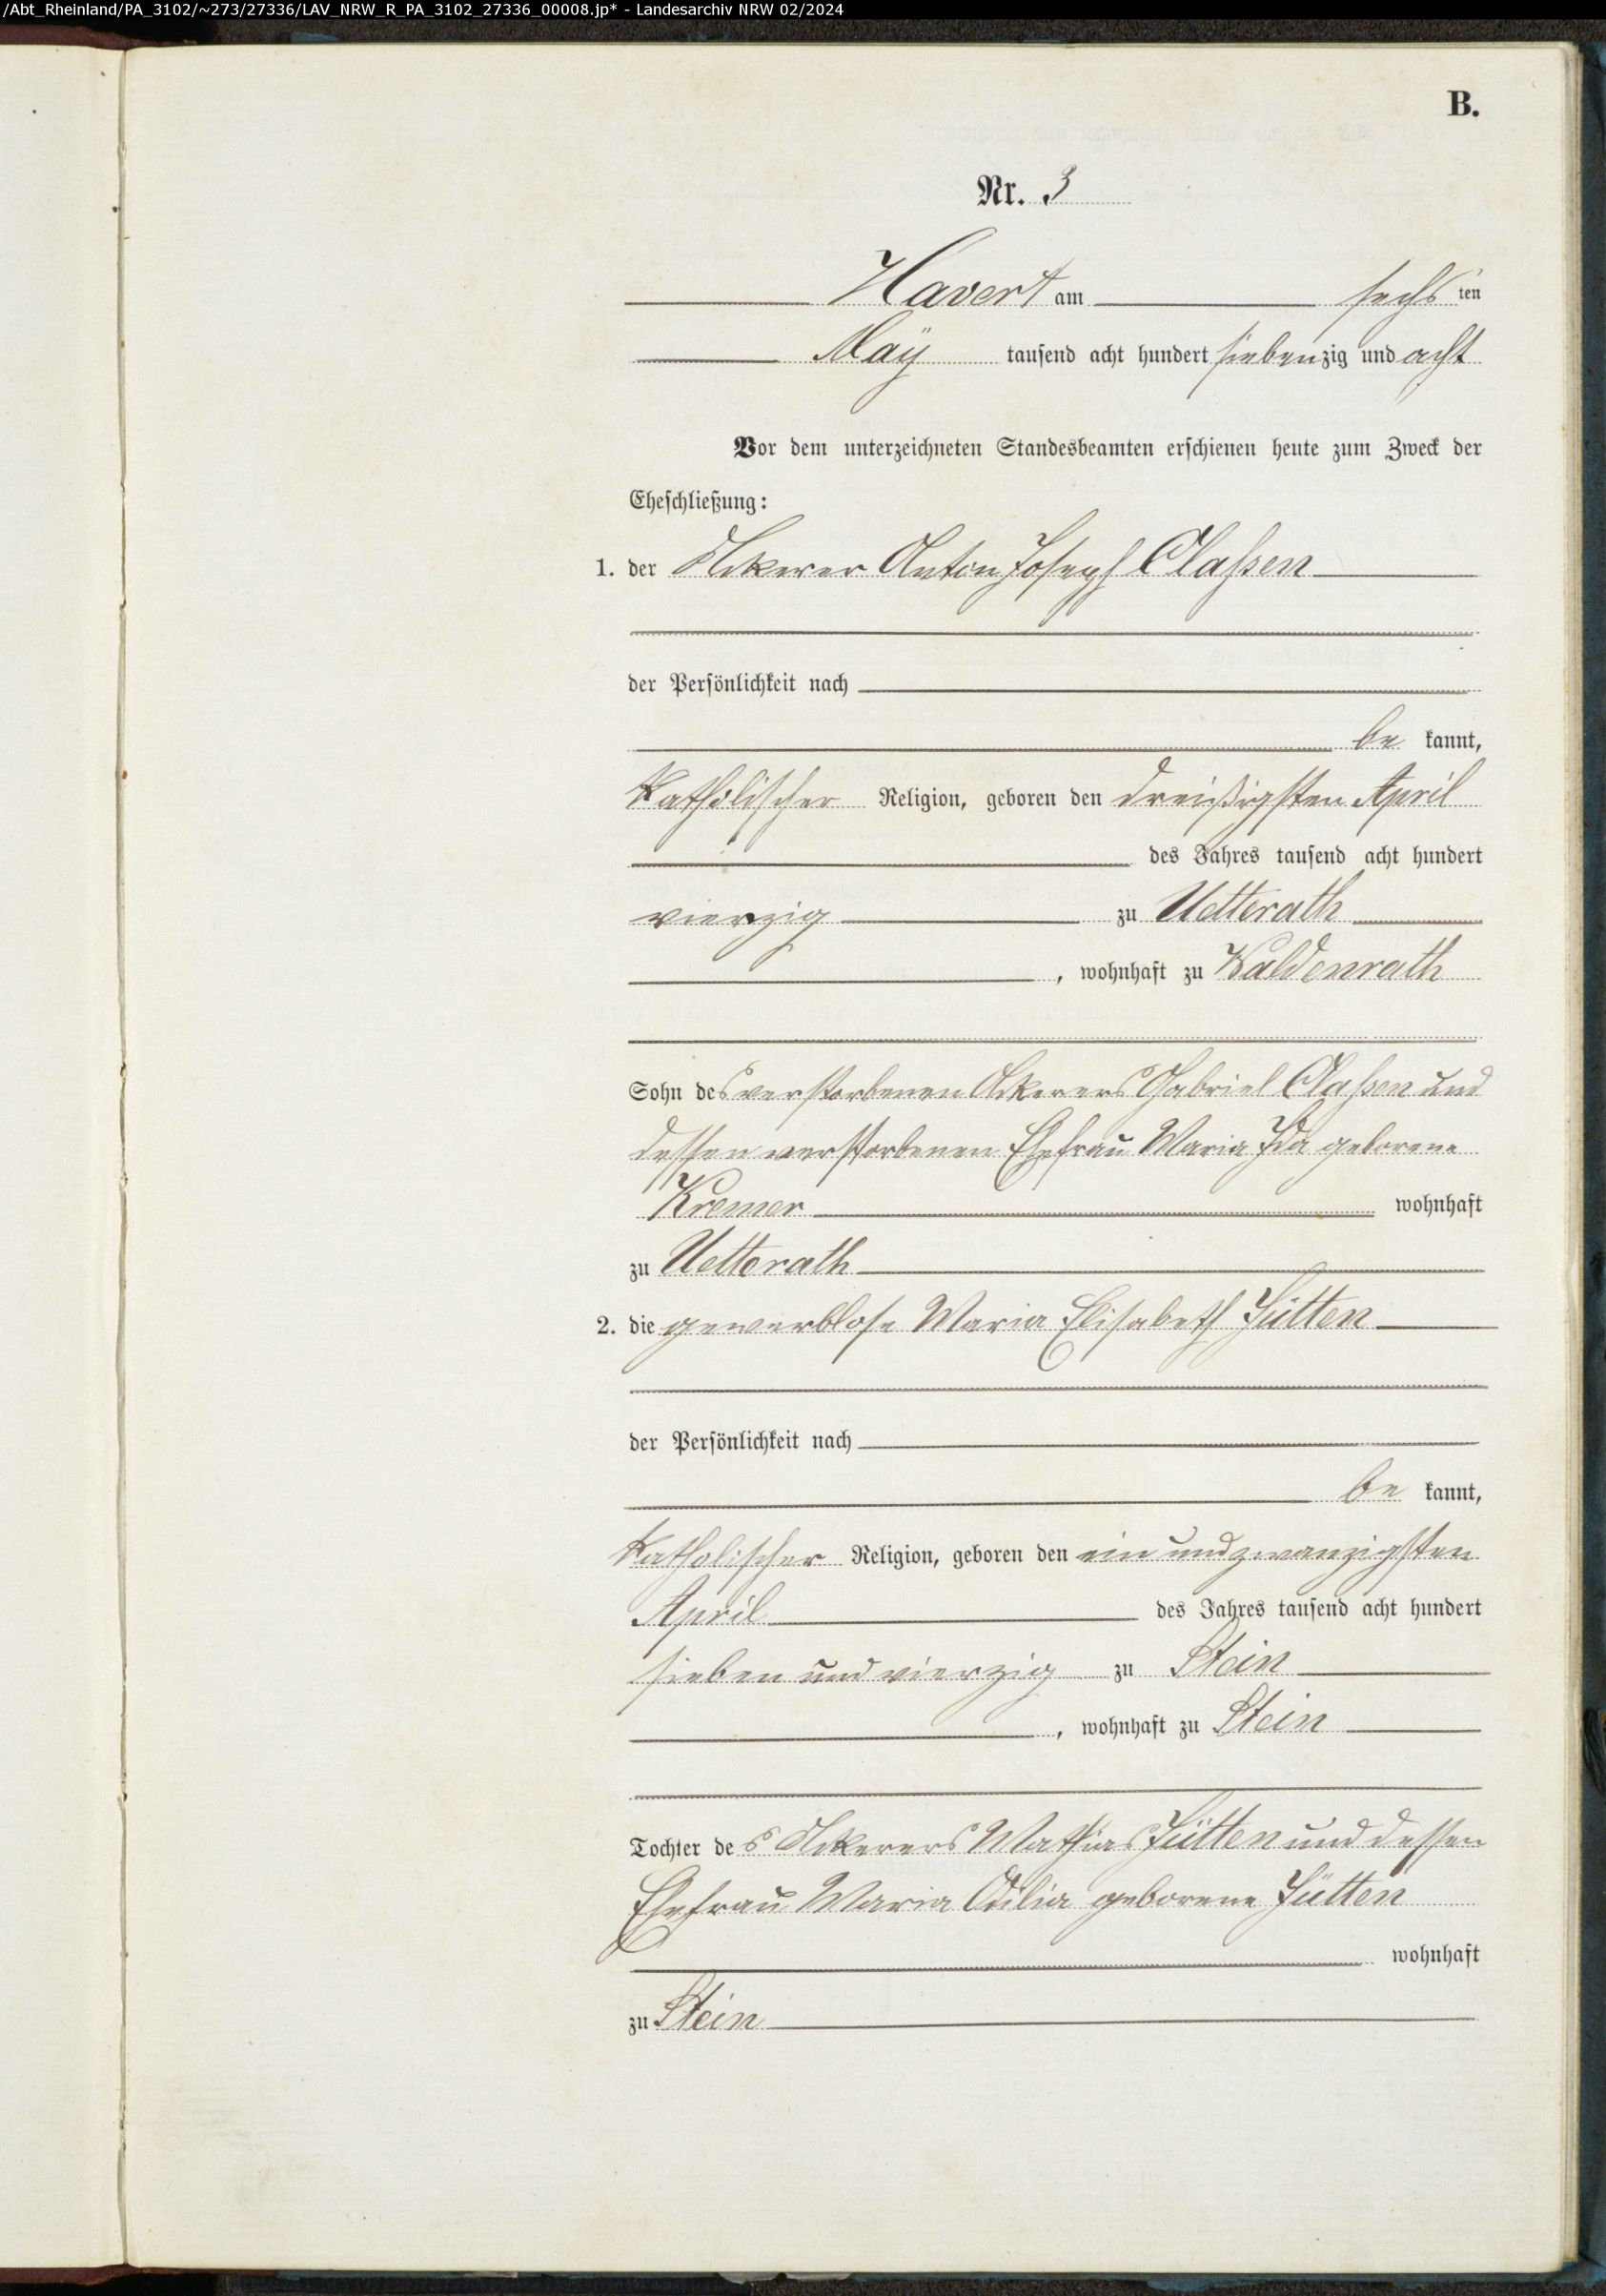 /Abt_Rheinland/PA_3102/~273/27336/LAV_NRW_R_PA_3102_27336_00008.jp* - Landesarchiv NRW 02/2024
B.
Nr. 3
Havert am sechsten
Maÿ tausend acht hundert siebenzig und acht
Vor dem unterzeichneten Standesbeamten erschienen heute zum Zweck der
Eheschließung:
1. der Ackerer Anton Joseph Claßen
der Persönlichkeit nach
bekannt,
katholischer Religion, geboren den dreißigsten April
des Jahres tausend acht hundert
vierzig zu Uetterath
, wohnhaft zu Waldenrath
Sohn des verstorbenen Ackerers Gabriel Claßen und
dessen verstorbenen Ehefrau Maria Ida geborene
Kremer wohnhaft
zu Uetterath
2. die gewerblose Maria Elisabeth Jütten
der Persönlichkeit nach
bekannt,
katholischer Religion, geboren den ein und zwanzigsten
April des Jahres tausend acht hundert
sieben und vierzig zu Stein
, wohnhaft zu Stein
Tochter des Ackerers Mathias Jütten und dessen
Ehefrau Maria Odilia geborene Jütten
wohnhaft
zu Stein